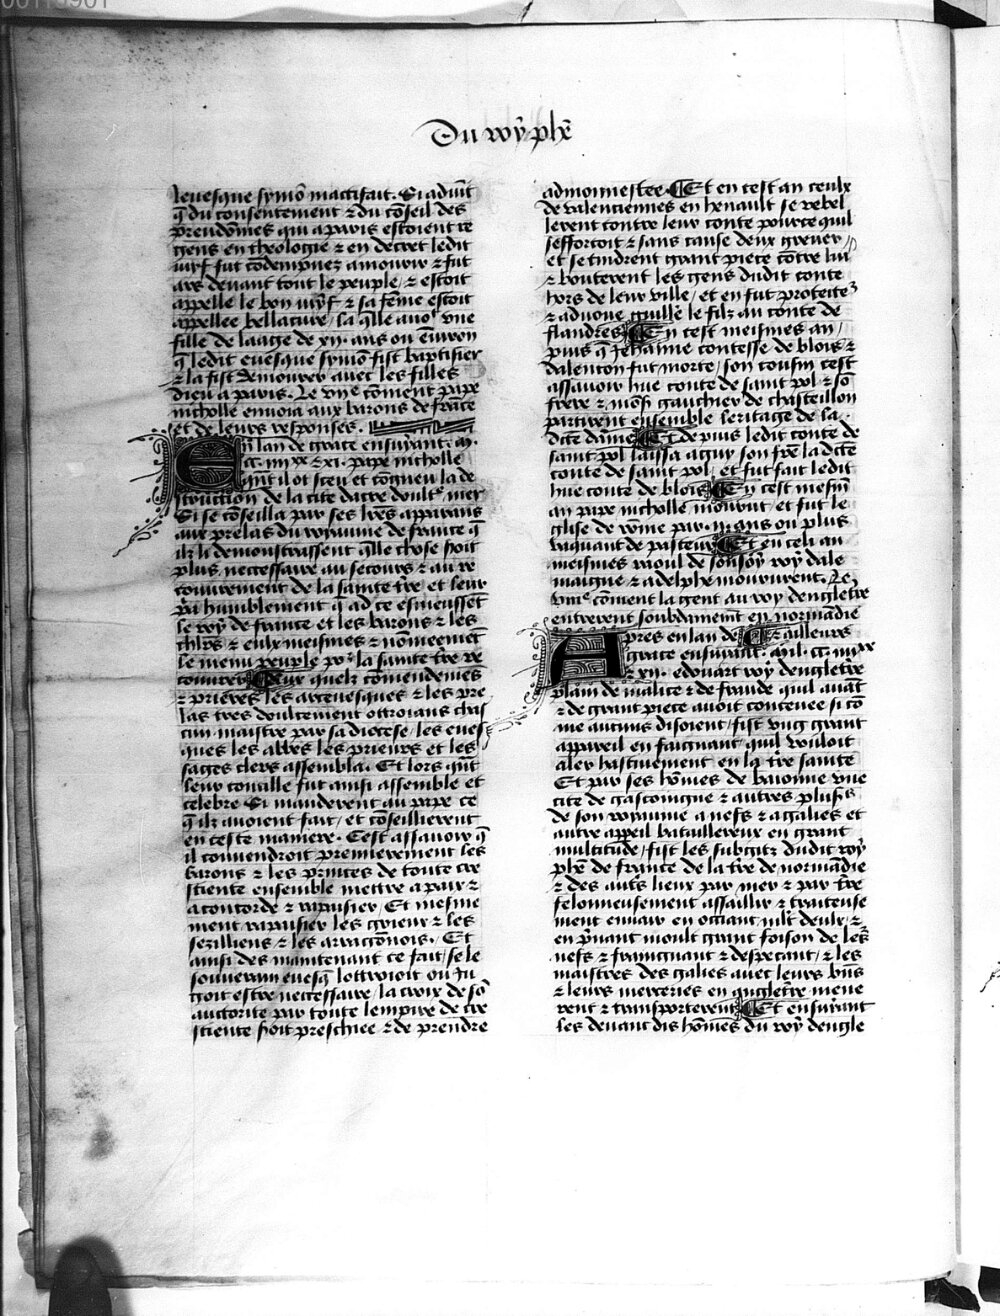 Du roy phē
levesque symō mactifait. Si advīt
q̄ du consentement ⁊ du cōseil des
preudōmes qui a paris estoient re
gens en theologie ⁊ en decret ledit
iuyf fut cōdempnez a mourir ⁊ fut
ars devant tout le peuple / ⁊ estoit
appelle le bon iuyf ⁊ sa fēme estoit
appellee bellatine / la q̄lle avoit une
fille de laage de xij. ans ou ēuiron
q̄ ledit evesque symō fist baptisier
⁊ la fist demourer avec les filles
dieu a paris. Le cōment pape
nicholle envoia aux barons de frāce
et de leurs responses.
En lan de grace ensuivant. m.
cc. iiij xx ⁊ xi. pape nicholle
quāt il ot sceu et cōgneu la de
struction de la cite dacre doultˢ mer
Si se cōseilla par ses lr̄es apparans
aux prelas du royaume de france q̄
ilz li demonstrassent q̄lle chose soit
plus necessaire au secours ⁊ au re
couvrement de la sainte t̄re et leur
p̄a humblement q̄ ad ce esmeussent
le roy de france et les barons ⁊ les
chl̄rs ⁊ eulx meismes ⁊ nōmeemēt
le menu peuple poˢ la sainte t̄re re
couvrer Aux quelz comendemēs
⁊ prieres les arcevesques ⁊ les pre
las tres doulcement ottroians chas
cun maistre par sa diocese / les eves
ques les abbes les prieurs et les
sages clers assembla. Et lors quāt
leur concille fut ainsi assemble et
celebre Si manderent au pape ce
q̄ ilz avoient fait / et cōseillierent
en ceste maniere. Cest assavoir q̄
il convendroit premierement les
barons ⁊ les princes de toute cre
stiente ensemble mettre a paix ⁊
a concorde ⁊ rapaisier / Et mesme
ment rapaisier les grieux ⁊ les
sezilliens ⁊ les arragōnois. Et
ainsi des maintenant ce fait / se le
souverain evesq̄ lottroioit ou iu
goit estre necessaire / la croix de sō
auctorite par toute lempire de cre
stiente soit preschiee ⁊ de prendre
admonnestee. Et en cest an ceulx
de valenciennes en henault se rebel
lerent contre leur conte pource quil
sefforcoit ⁊ sans cause deulx grever
et se tindrent grant piece cōtre lui
⁊ bouterent les gens dudit conte
hors de leur ville / et en fut protecteˢ
⁊ advoue guille le filz au conte de
flandres En cest meismes an /
puis q̄ Jehanne contesse de blois ⁊
dalencon fut morte / son cousin cest
assavoir hue conte de saint pol ⁊ sō
frere ⁊ mōsʳ gauchier de chasteillon
partirent ensemble leritage de la
dicte dame Et depuis ledit conte de
saint pol laissa a guy son fr̄e la dc̄te
conte de saint pol / et fut fait ledit
hue conte de blois En cest mesm̄
an pape nicholle mourut / et fut le
glise de rōme par .ii. ans ou plus
vaquant de pasteur Et en celi an
meismes raoul de roy dale
maigne ⁊ adelphe moururent. Le
cōment la gent au roy dengletr̄e
entrerent soubdainemēt en normādie
Apres en lan de ⁊ ailleurs
grace ensuivant. mil. cc. iiij xx
⁊ xii. edouart roy dengletr̄e
plain de malice ⁊ de fraude quil avāt
⁊ de grant piece avoit conceuee si cō
me aucuns disoient / fist ung grant
appareil en faignant quil vouloit
aler hastivement en la t̄re sainte
Et par ses hōmes de baionne une
cite de gascoingne ⁊ autres plusˢˢ
de son royaume a nefs ⁊ a galies et
autre appeil bataillereux en grant
multitude / fist les subgitz dudit roy
phē de france de la t̄re de normādie
⁊ des aut̄s lieux par mer ⁊ par t̄re
felonneusement assaillir ⁊ traiteuse
ment envair en occiant deulx ⁊
en p̄nant moult grant foison de les
nefs ⁊ fraingnant ⁊ despecant / ⁊ les
maistres des galies avec leurs biēs
⁊ leurs merceries en angletr̄e mene
rent ⁊ transporterent Et ensuivant
les devant dis hōmes du roy dengle